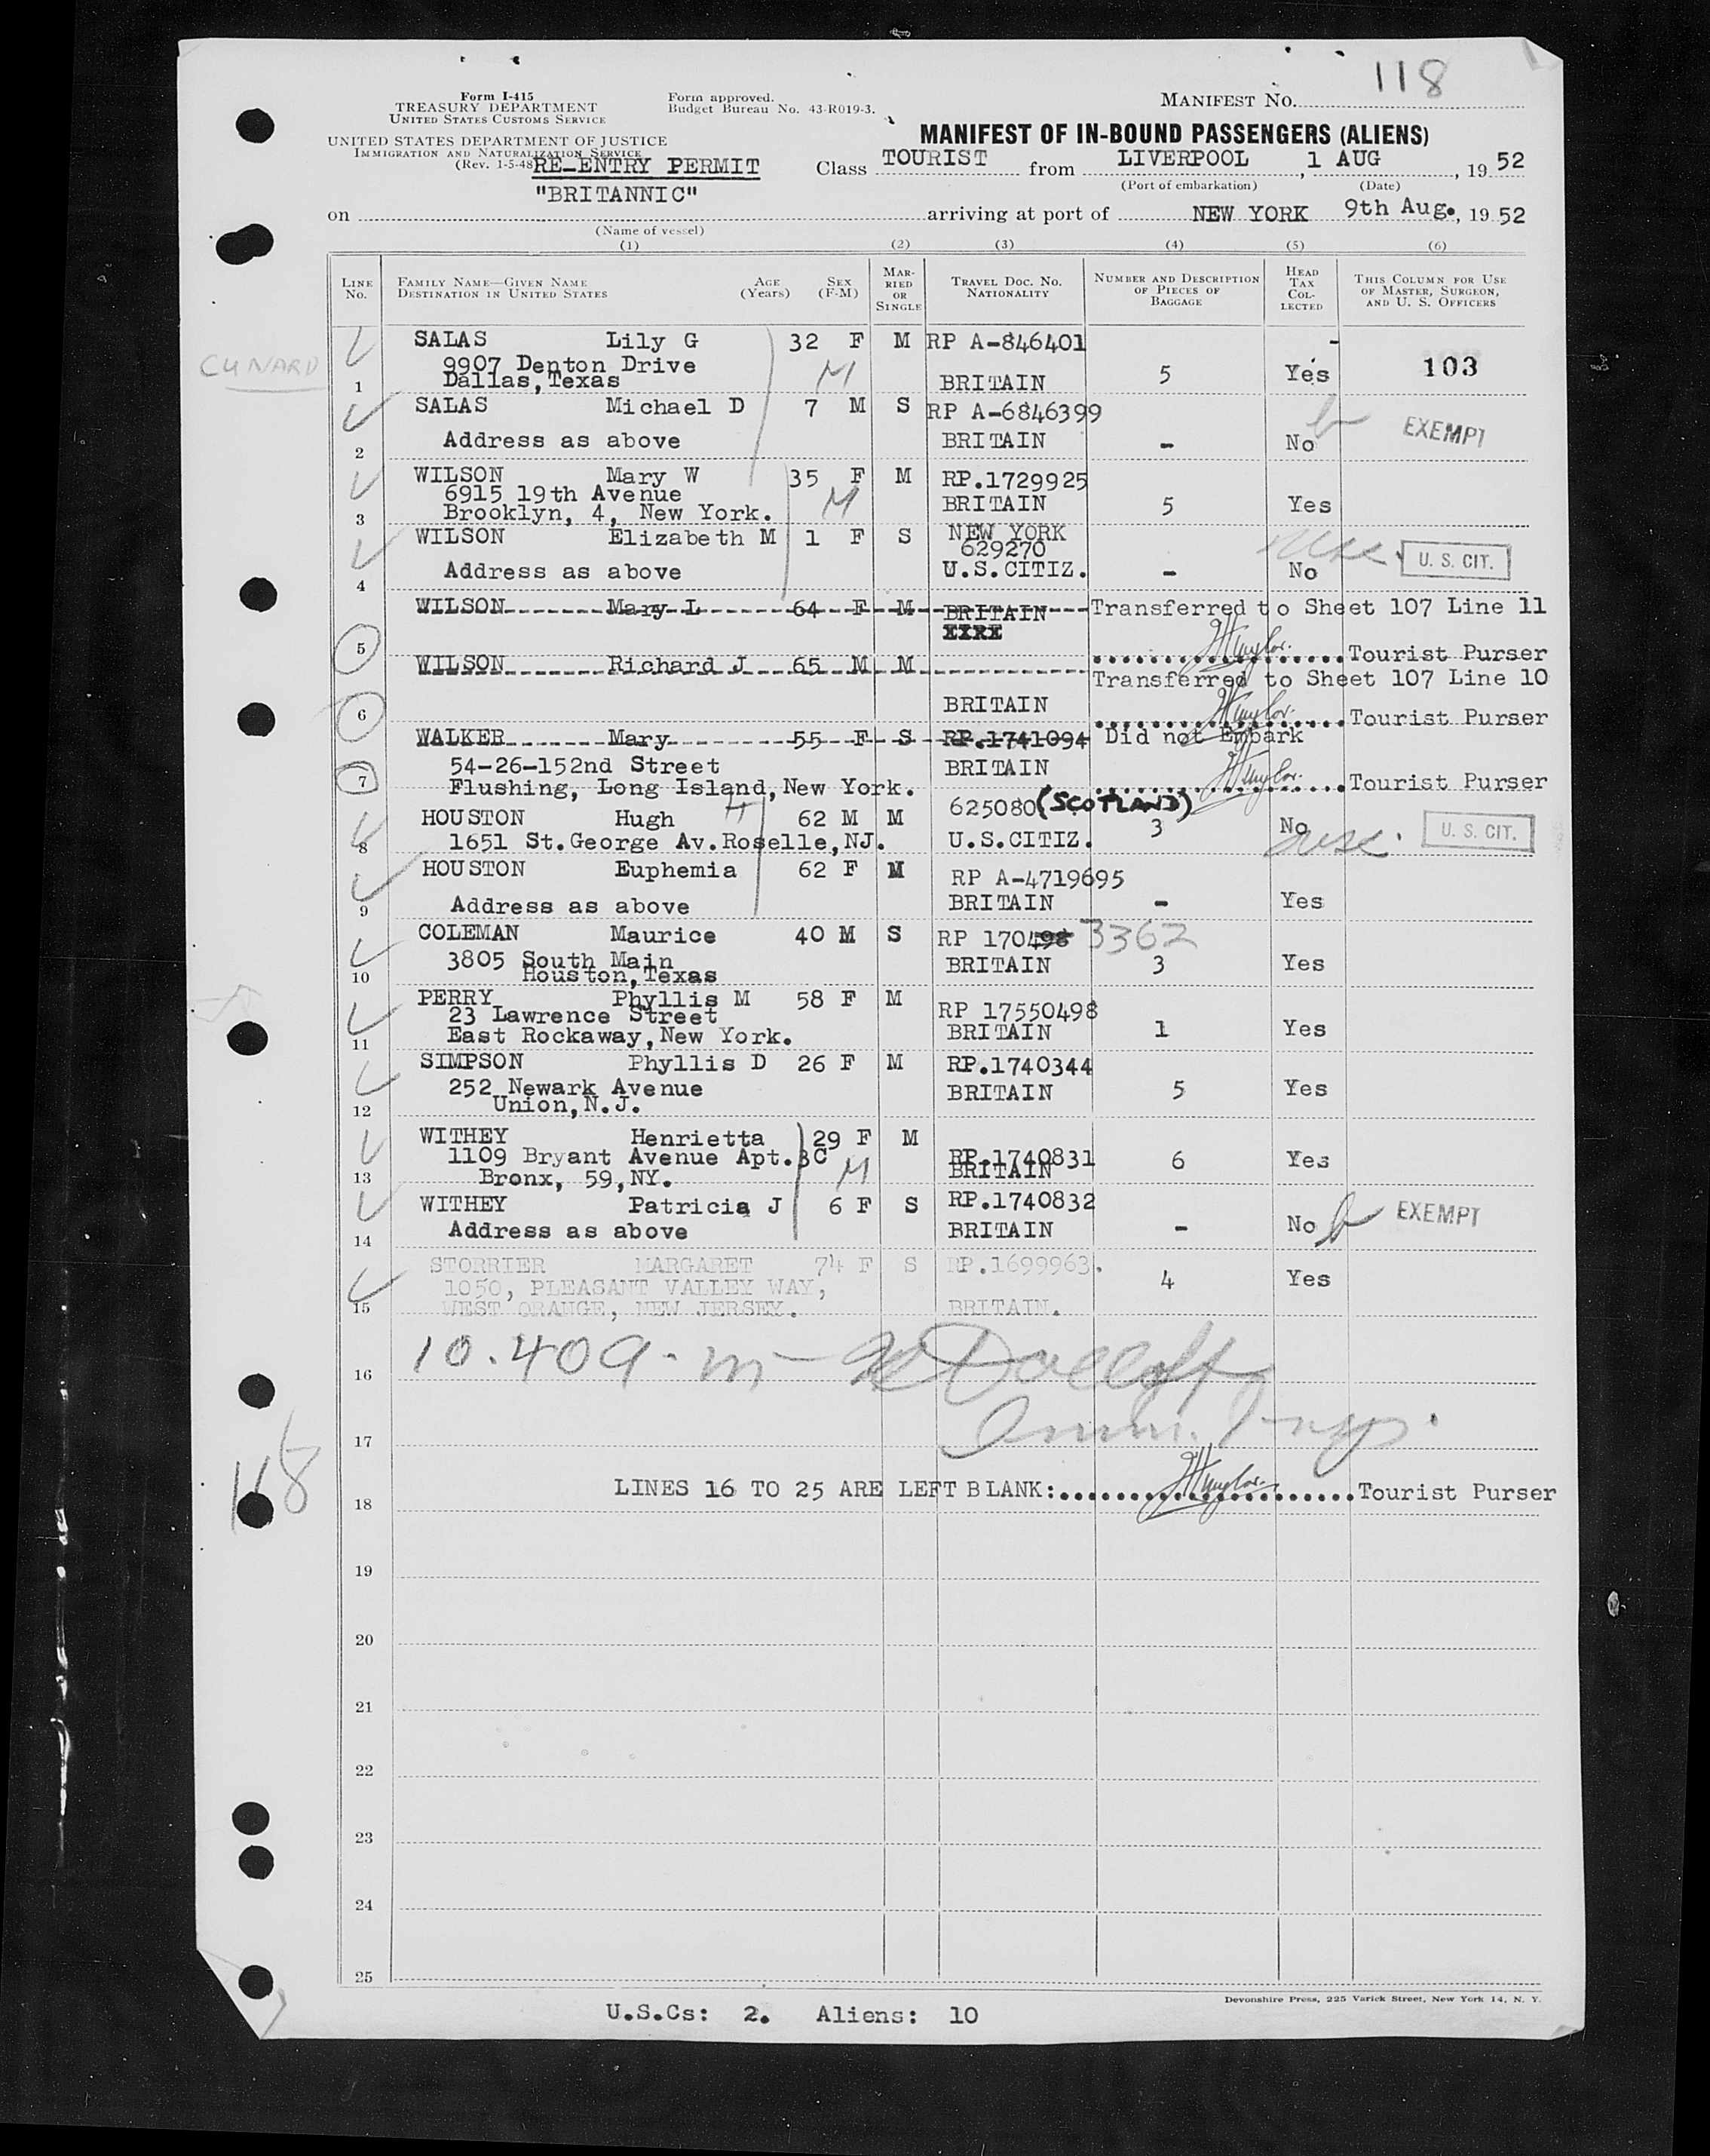 118
Form I-415
TREASURY DEPARTMENT
UNITED STATES CUSTOMS SERVICE
Form approved.
Budget Bureau No. 43-R019-3.
MANIFEST NO.
UNITED STATES DEPARTMENT OF JUSTICE
IMMIGRATION AND NATURALIZATION SERVICE
(Rev. 1-5-48)
RE-ENTRY PERMIT
MANIFEST OF IN-BOUND PASSENGERS (ALIENS)
Class TOURIST from LIVERPOOL, 1 AUG, 19 52
(Port of embarkation) (Date)
on "BRITANNIC" arriving at port of NEW YORK 9th Aug., 19 52
(Name of vessel)
(1) (2) (3) (4) (5) (6)
LINE No. FAMILY NAME—GIVEN NAME DESTINATION IN UNITED STATES AGE (Years) SEX (F-M) MARRIED OR SINGLE TRAVEL DOC. NO. NATIONALITY NUMBER AND DESCRIPTION OF PIECES OF BAGGAGE HEAD TAX COLLECTED THIS COLUMN FOR USE OF MASTER, SURGEON, AND U. S. OFFICERS
CUNARD
SALAS Lily G 32 F M RP A-846401 -
9907 Denton Drive M
1 Dallas,Texas BRITAIN 5 Yes 103
SALAS Michael D 7 M S RP A-6846399
2 Address as above BRITAIN - No EXEMPT
WILSON Mary W 35 F M RP.1729925
6915 19th Avenue M
3 Brooklyn, 4, New York. BRITAIN 5 Yes
WILSON Elizabeth M 1 F S NEW YORK
629270
4 Address as above U.S.CITIZ. - No U. S. CIT.
WILSON Mary L 64 F M BRITAIN Transferred to Sheet 107 Line 11
5 Tourist Purser
WILSON Richard J 65 M M
Transferred to Sheet 107 Line 10
6 BRITAIN Tourist Purser
WALKER Mary 55 F S RP.1741094 Did not Embark
54-26-152nd Street BRITAIN
7 Flushing, Long Island,New York. Tourist Purser
HOUSTON Hugh 62 M M 625080 (SCOTLAND)
8 1651 St.George Av.Roselle,NJ. U.S.CITIZ. 3 No U. S. CIT.
HOUSTON Euphemia 62 F M RP A-4719695
9 Address as above BRITAIN - Yes
COLEMAN Maurice 40 M S RP 170498 3362
3805 South Main
10 Houston,Texas BRITAIN 3 Yes
PERRY Phyllis M 58 F M RP 17550498
23 Lawrence Street
11 East Rockaway,New York. BRITAIN 1 Yes
SIMPSON Phyllis D 26 F M RP.1740344
252 Newark Avenue BRITAIN 5 Yes
12 Union,N.J.
WITHEY Henrietta 29 F M
1109 Bryant Avenue Apt.3C RP.1740831 6 Yes
M BRITAIN
13 Bronx, 59,NY.
WITHEY Patricia J 6 F S RP.1740832
14 Address as above BRITAIN - No EXEMPT
STORRIER MARGARET 74 F S RP.1699963.
1050, PLEASANT VALLEY WAY, 4 Yes
15 WEST ORANGE, NEW JERSEY. BRITAIN.
16 10.409.m
17 Imm. Insp.
118
18 LINES 16 TO 25 ARE LEFT BLANK: Tourist Purser
19
20
21
22
23
24
25
Devonshire Press, 225 Varick Street, New York 14, N. Y.
U.S.Cs: 2. Aliens: 10